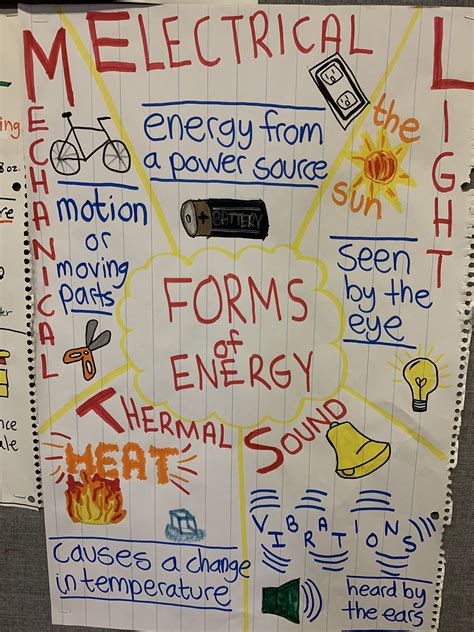 MECHANICAL
motion
or
moving
parts
ELECTRICAL
energy from
a power source
BATTERY
LIGHT
the
sun
seen
by the
eye
FORMS
of
ENERGY
THERMAL
HEAT
causes a change
in temperature
SOUND
VIBRATIONS
heard by
the ears
ing
8 oz.
re
ter
nce
ale